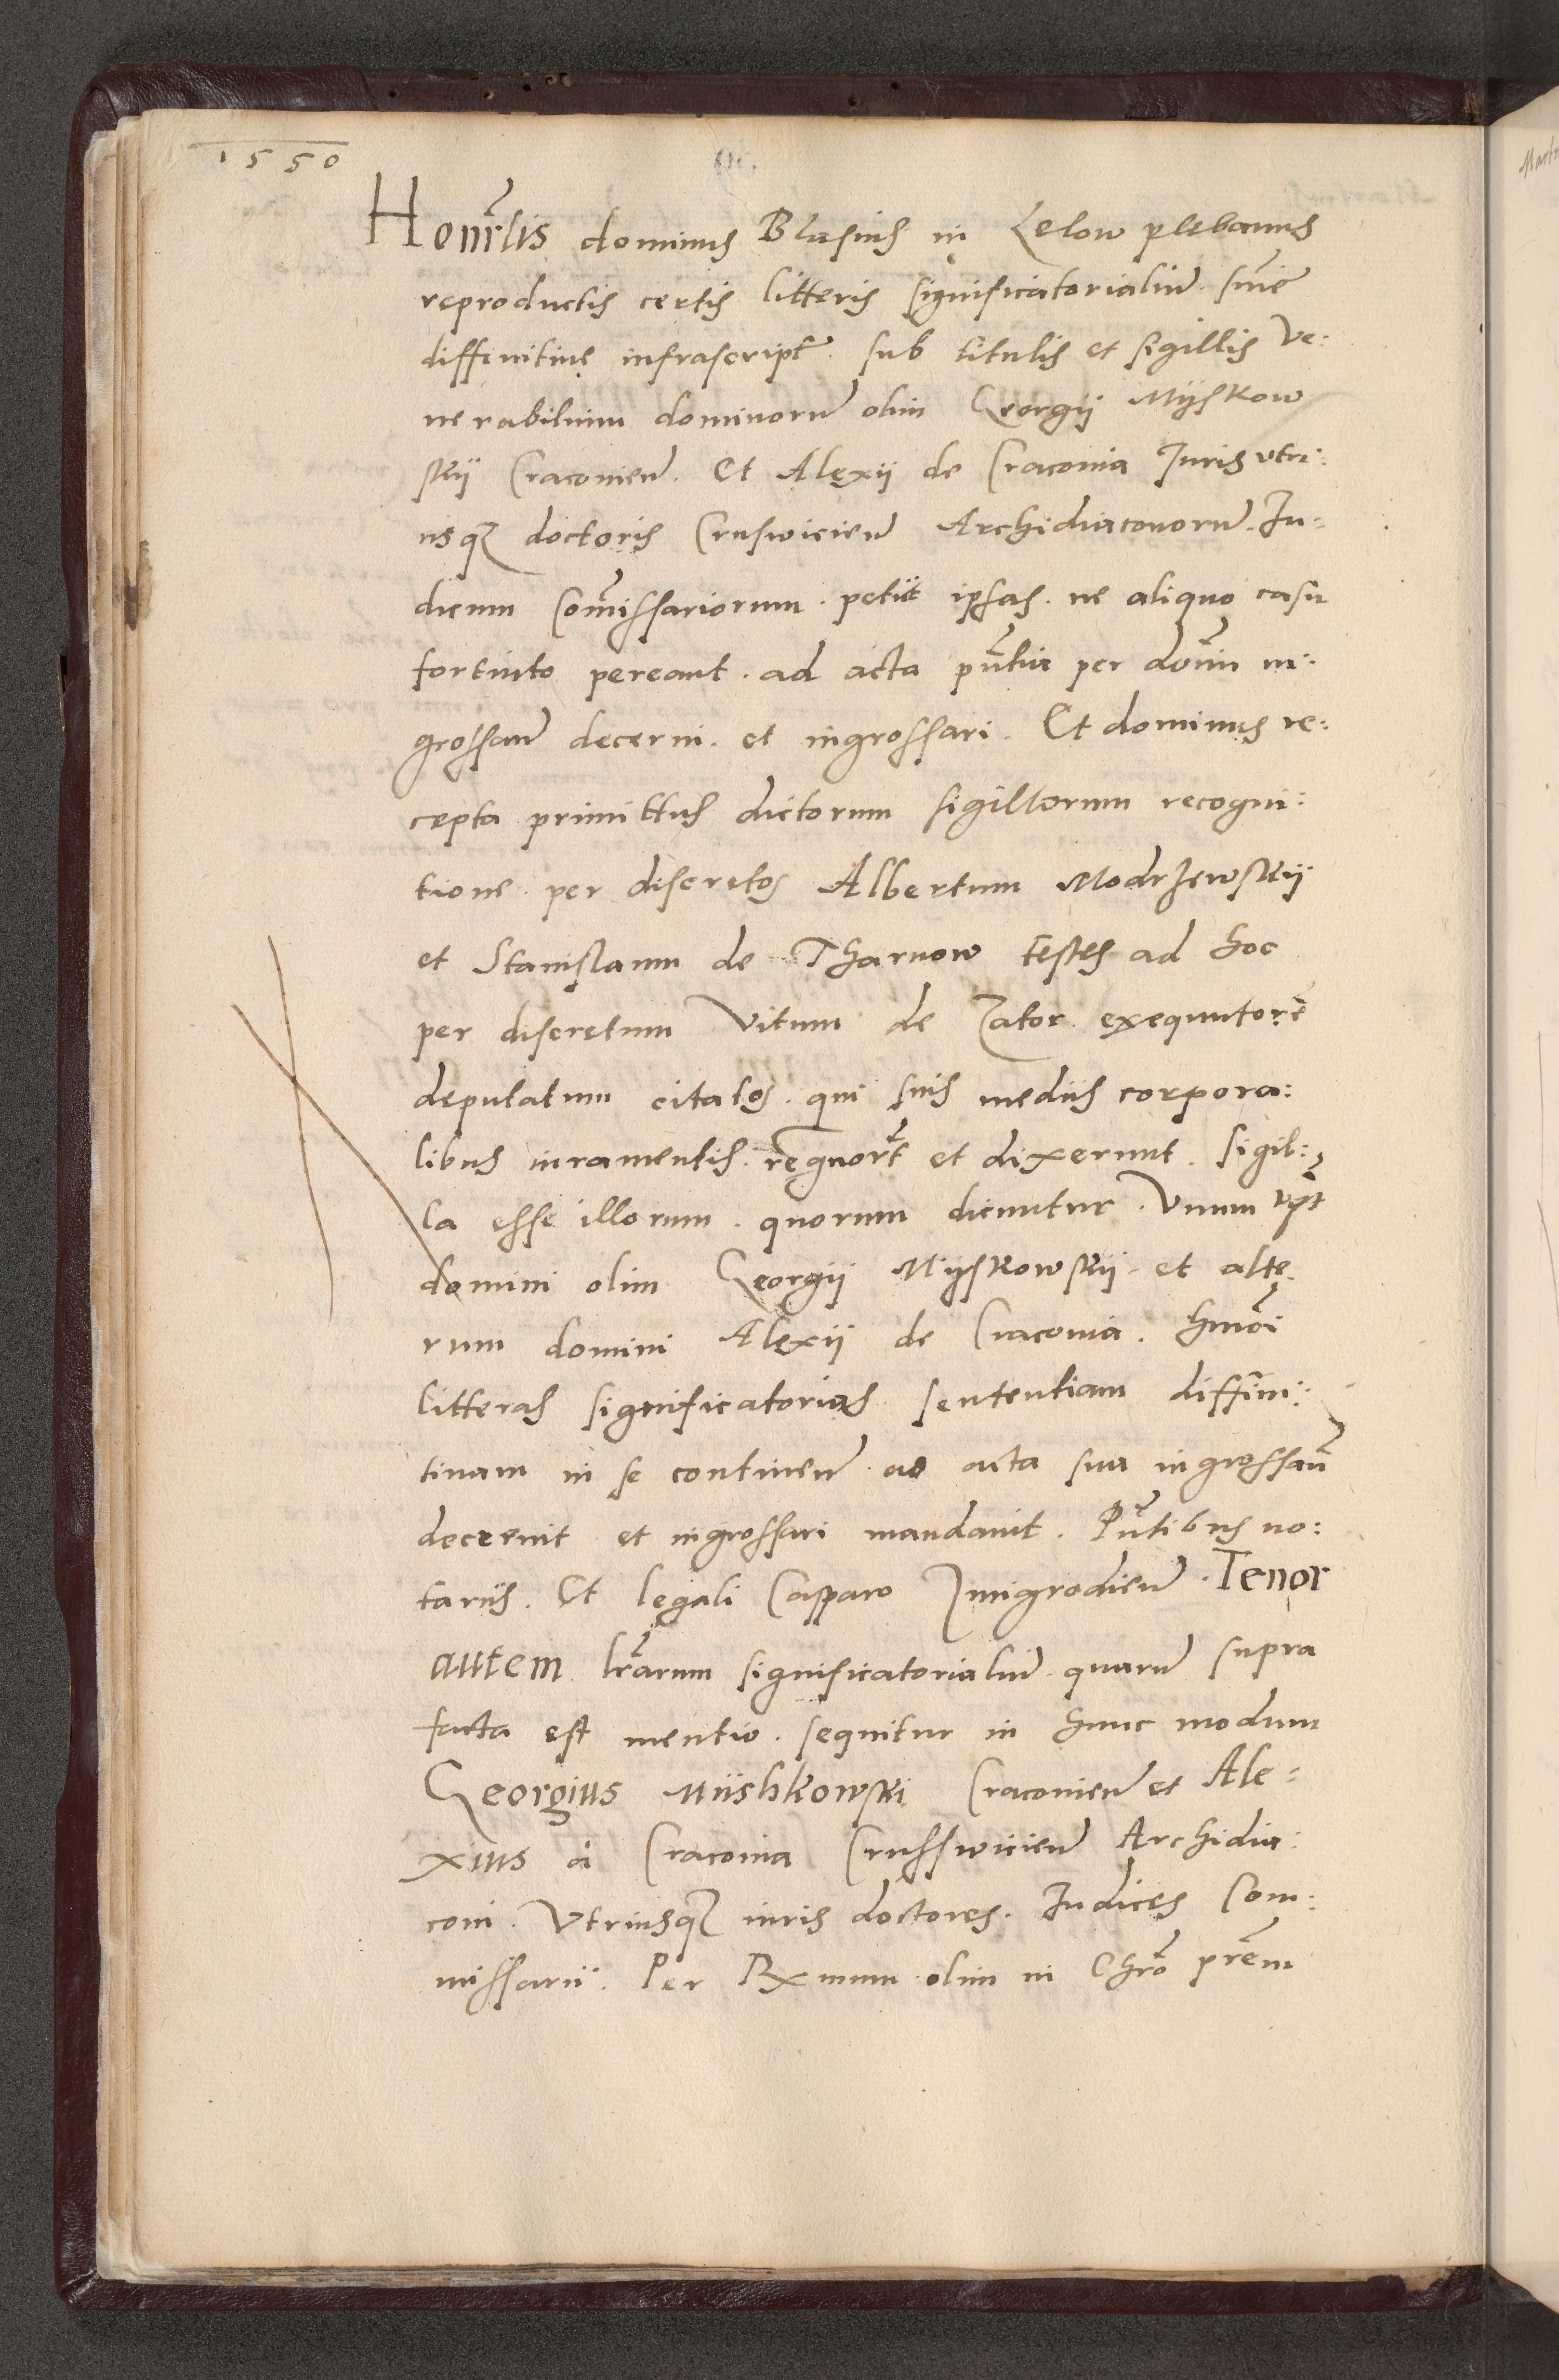 1550
Honr̃lis dominus Blasius in Lelow plebanus
reproductis certis litteris significatorialiuȝ snĩe
diffinitiuę infrascript̃. sub titulis et sigillis Ve:
nerabilium dominorȗ olim Georgij Myskow
skij Cracovieñ. Et Alexij de Cracovia Iuris vtri:
usqȝ doctoris Cruswicieñ Archidiaconorȗ. Iu-
dicum Com̃issariorum. petiit ipsas. ne aliquo casu
fortuito pereant. ad acta pñtia per dom̃ in:
grossañ decerni. et ingrossari. Et dominus re:
cepta primittus dictorum sigillorum recogni:
tione per discretos Albertum Modrzewskij
et Stanislaum de Tharnow testes ad hoc
per discretum Vitum de Zator exequutorẽ
deputatum citatos. qui suis mediis corpora:
libus iuramentis. recgnort̃ et dixerunt. sigil:
la esse illorum. quorum dicuntur. Vnum vz̃
domini olim Georgij Myskowskij et alte.
rum domini Alexij de Cracovia. Hmõi
litteras significatorias sententiam diffini:
tiuam in se contineñ ad acta sua ingrossañ
decrevit et ingrossari mandauit. Pñtibus no:
tariis. Et legali Casparo Zmigrodieñ. Tenor
autem lr̃arum significatorialiũ quarũ supra
facta est mentio. sequitur in hunc modum
Georgius Miishkowski Cracovieñ et Ale-
xius à Cracovia Crusswicieñ Archidia:
coni. Vtriusqȝ iuris doctores. Iudices Com:
missarii. Per Rxmum olim in Chrõ pr̃em